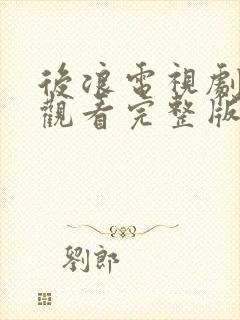 後浪電視劇
觀看完整版
劉郎